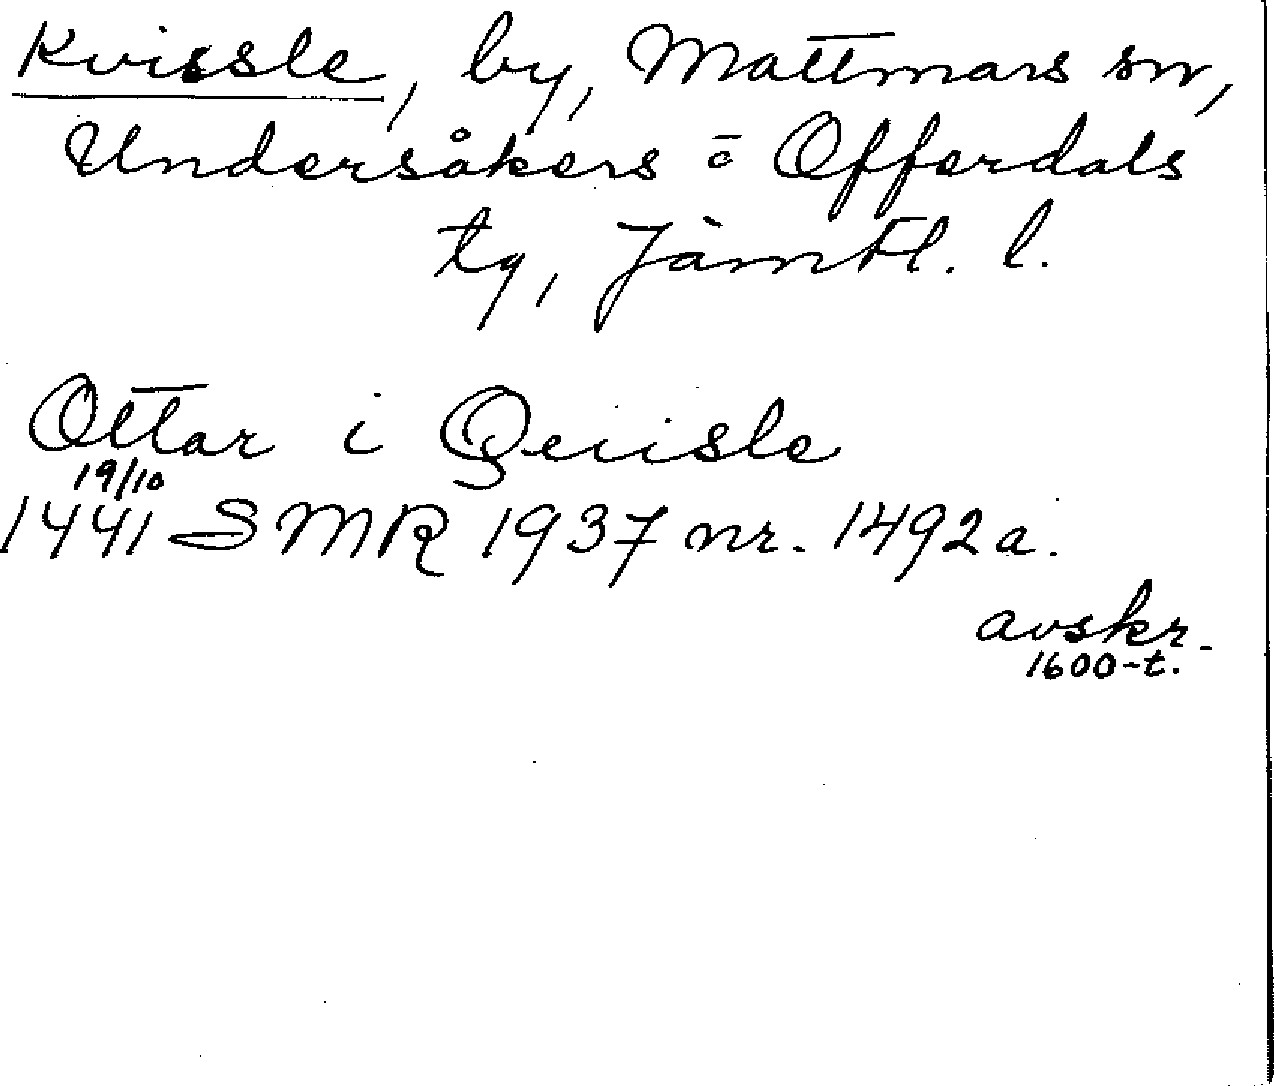 Kvissle, by, Mattmars sn,
Undersåkers o Offerdals
tg, Jämtl. l.
Ottar i Qeuisle
19/10
1441 SMR 1937 nr. 1492a.
avskr.
1600-t.